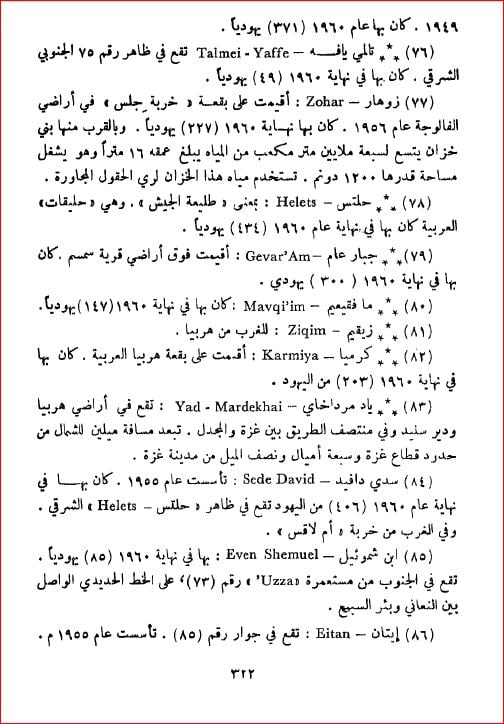 ١٩٤٩ . كان بها عام ١٩٦٠ (٣٧١) يهودياً .
(٧٦) *** تالمي يافـــه – Talmei - Yaffe تقع في ظاهر رقم ٧٥ الجنوبي
الشرقي . كان بها في نهاية ١٩٦٠ (٤٩) يهودياً .
(٧٧) زوهار – Zohar : أقيمت على بقعة « خربة جلس » في أراضي
الفالوجة عام ١٩٥٦ . كان بها نهـاية ١٩٦٠ (٢٢٧) يهودياً . وبالقرب منها بني
خزان يتسع لسبعة ملايين متر مكعب من المياه يبلغ عمقه ١٦ متراً وهو يشغل
مساحة قدرها ١٢٠٠ دونم . تستخدم مياه هذا الخزان لري الحقول المجاورة .
(٧٨) *** حلتس – Helets : بمعنى « طليعة الجيش » . وهي «حليقات»
العربية كان بها في نهاية عام ١٩٦٠ (٤٣٤) يهودياً .
(٧٩) *** جبار عام – Gevar'Am : أقيمت فوق أراضي قرية سمسم .كان
بها في نهاية ١٩٦٠ ( ٣٠٠ ) يهودي .
(٨٠) *** ما فقيعيم – Mavqi'im :كان بها في نهاية ١٩٦٠(١٤٧)يهودياً.
(٨١) *** زيقيم – Ziqim : للغرب من هربيا .
(٨٢) *** كرميا – Karmiya : أقيمت على بقعة هربيا العربية . كان بها
في نهاية ١٩٦٠ (٢٠٣) من اليهود .
(٨٣) *** ياد مرداخاي – Yad - Mardekhai : تقع في أراضي هربيا
ودير سنيد وفي منتصف الطريق بين غزة والمجدل . تبعد مسافة ميلين للشمال من
حدود قطاع غزة وسبعة أميال ونصف الميل من مدينة غزة .
(٨٤) سدي دافيد – Sede David : تأسست عام ١٩٥٥ . كان بهـــا في
نهاية عام ١٩٦٠ (٤٠٦) من اليهود تقع في ظاهر « حلتس – Helets » الشرقي .
وفي الغرب من خربة « أم لاقس » .
(٨٥) ابن شموئيل – Even Shemuel : بها في نهاية ١٩٦٠ (٨٥) يهودياً .
تقع في الجنوب من مستعمرة «Uzza' » رقم (٧٣)، على الخط الحديدي الواصل
بين النعاني وبئر السبع .
(٨٦) إيتان – Eitan : تقع في جوار رقم (٨٥) . تأسست عام ١٩٥٥ م .
٣٢٢